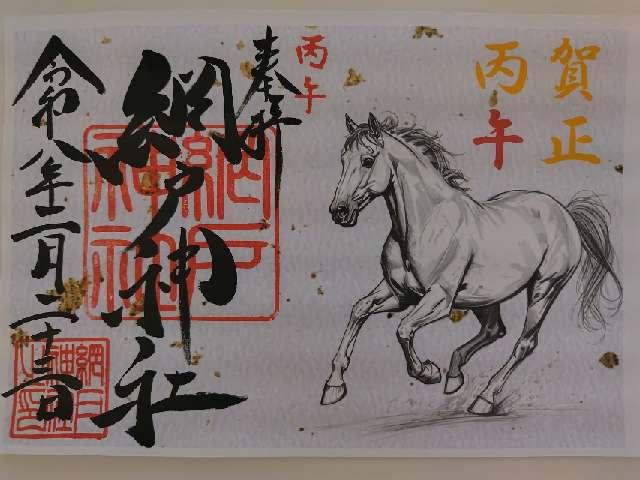 賀正
丙午
丙午
奉拝
網戸神社
令和八年二月二十三日
網戸
神社
網戸
神社
之印